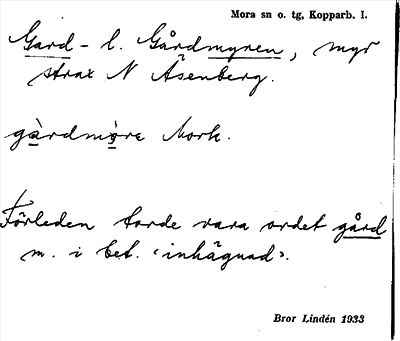 Mora sn o. tg, Kopparb. l.
Gard- l. Gårdmyren, myr
strax N Åsenberg.
gàrdmỳre Mork.
Förleden torde vara ordet gård
m. i bet. ‹inhägnad›.
Bror Lindén 1933